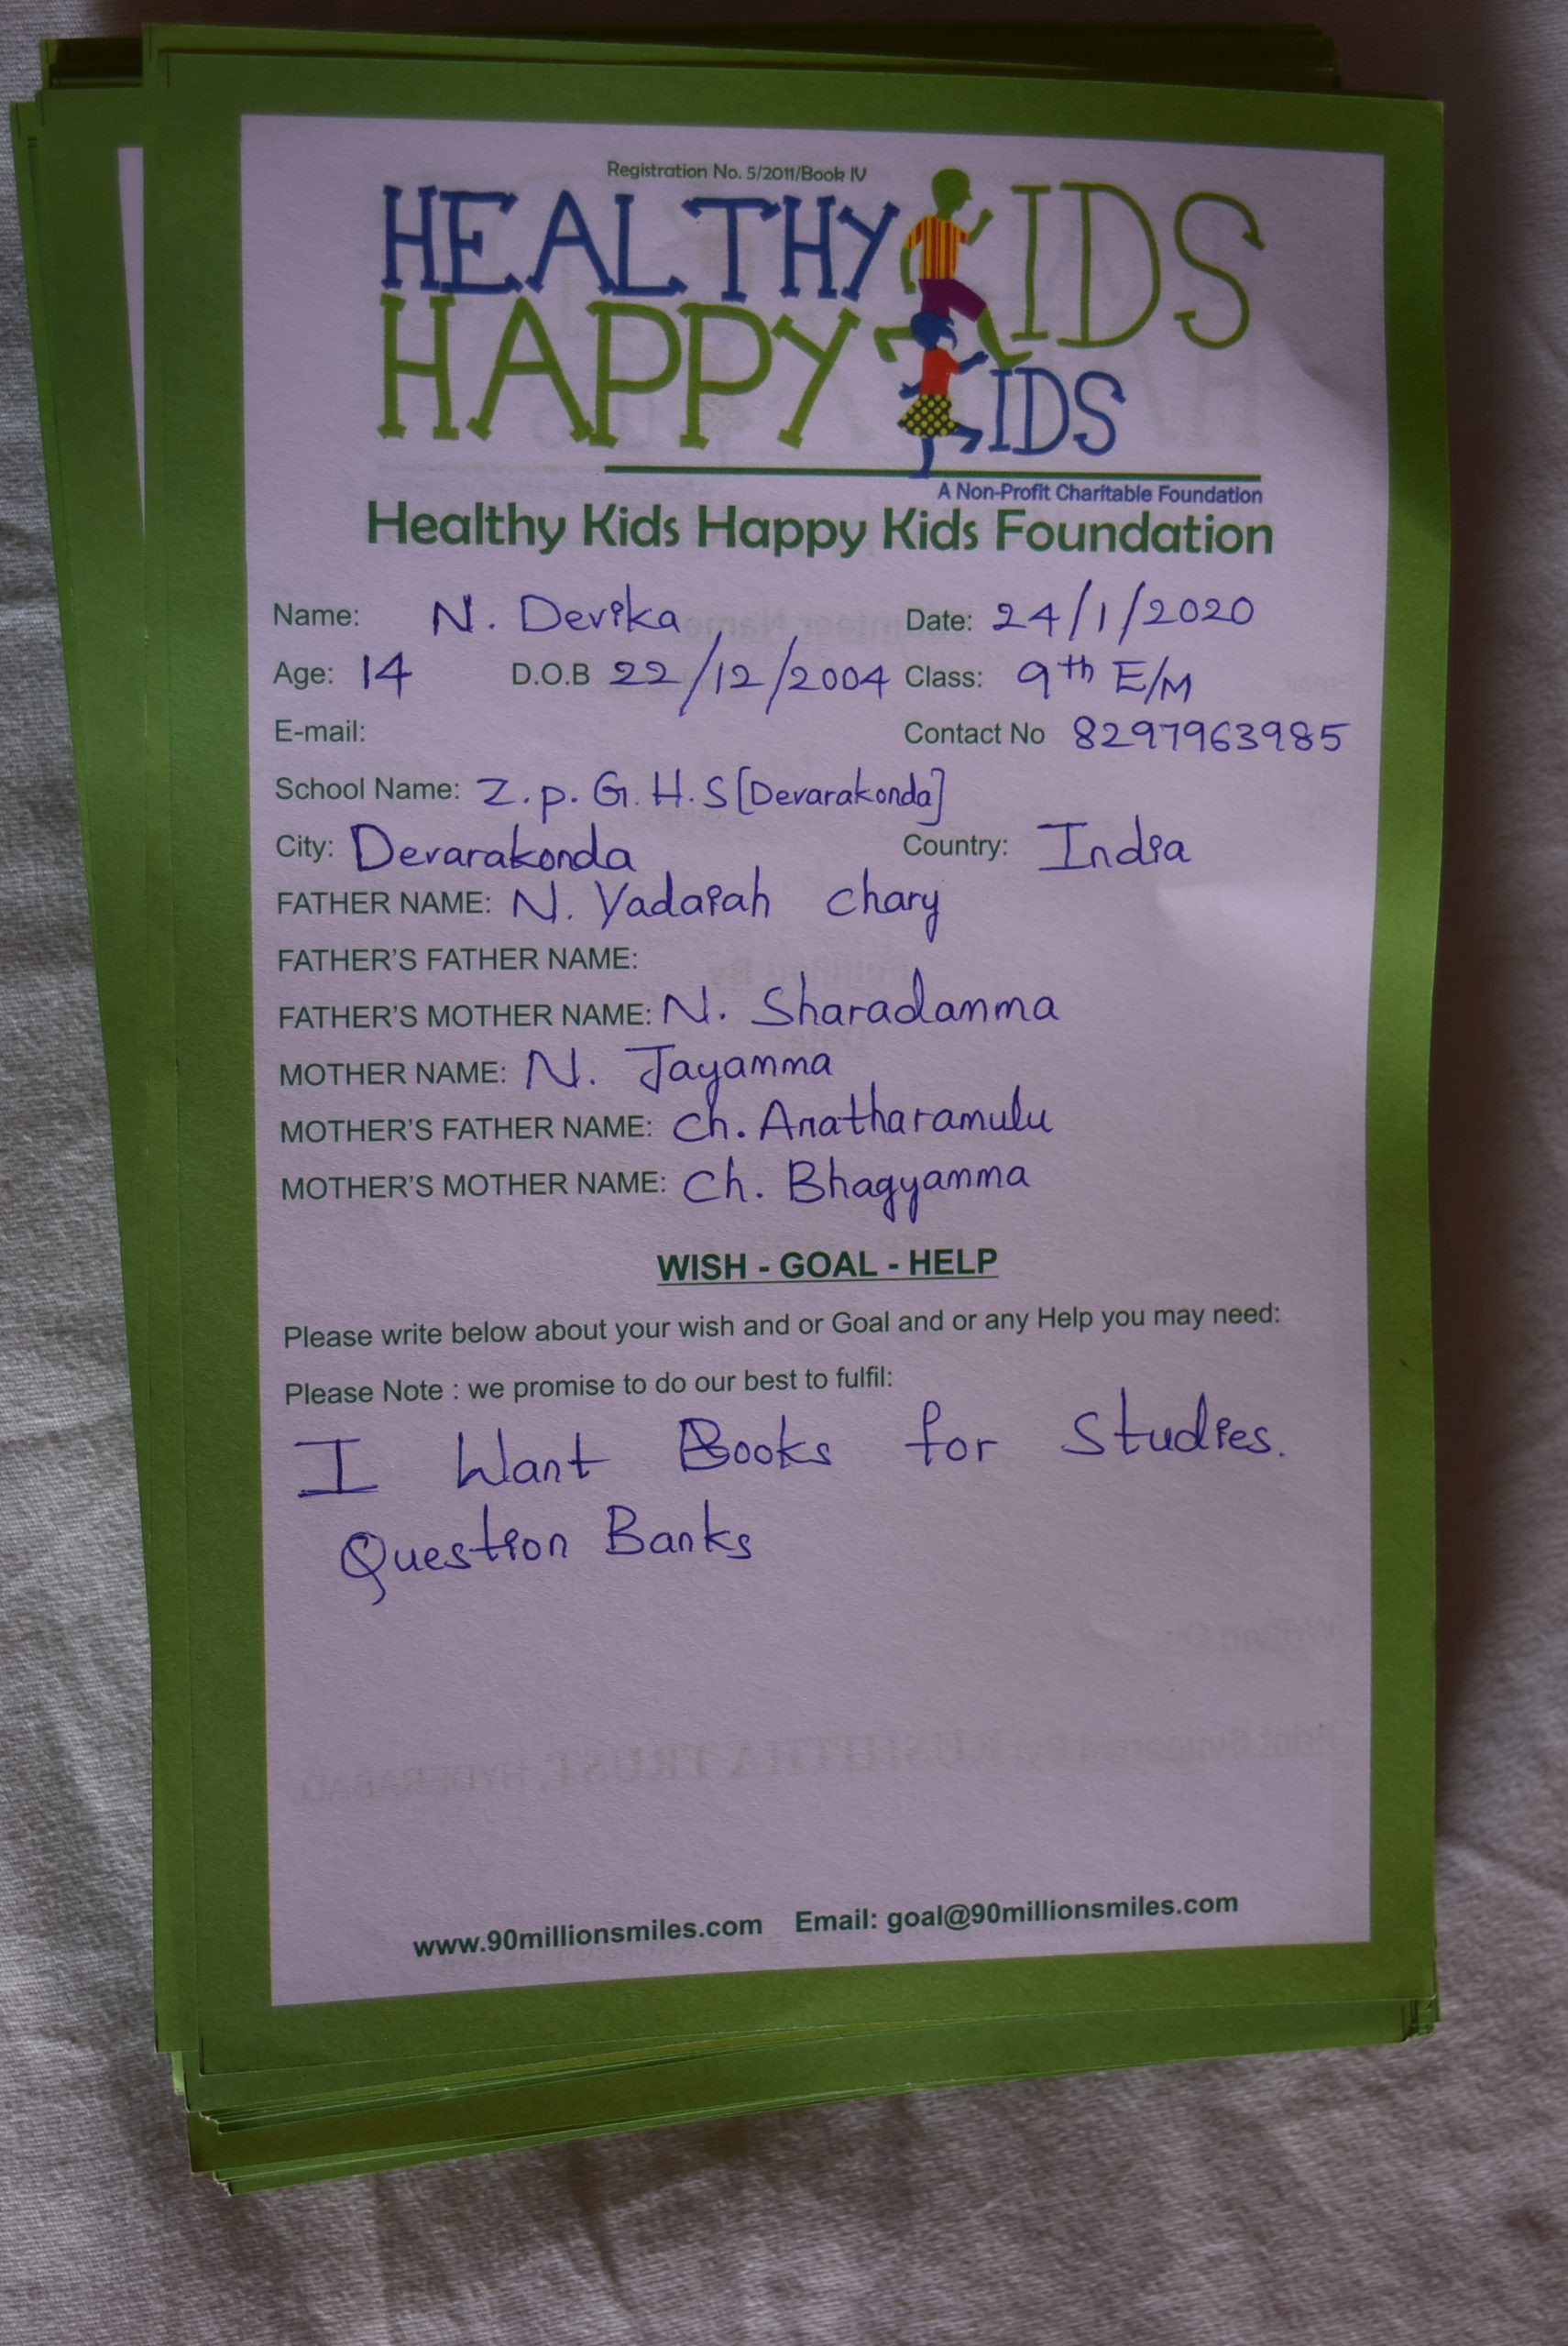 Registration No. 5/2011/Book IV
HEALTHY KIDS
HAPPY KIDS
A Non-Profit Charitable Foundation
Healthy Kids Happy Kids Foundation
Name: N. Devika Date: 24/1/2020
Age: 14 D.O.B 22/12/2004 Class: 9th E/M
E-mail: Contact No 8297963985
School Name: Z.p. G.H.S [Devarakonda]
City: Devarakonda Country: India
FATHER NAME: N. Yadaiah chary
FATHER'S FATHER NAME:
FATHER'S MOTHER NAME: N. Sharadamma
MOTHER NAME: N. Jayamma
MOTHER'S FATHER NAME: Ch. Anatharamulu
MOTHER'S MOTHER NAME: Ch. Bhagyamma
WISH - GOAL - HELP
Please write below about your wish and or Goal and or any Help you may need:
Please Note : we promise to do our best to fulfil:
I Want Books for Studies.
Question Banks
www.90millionsmiles.com Email: goal@90millionsmiles.com